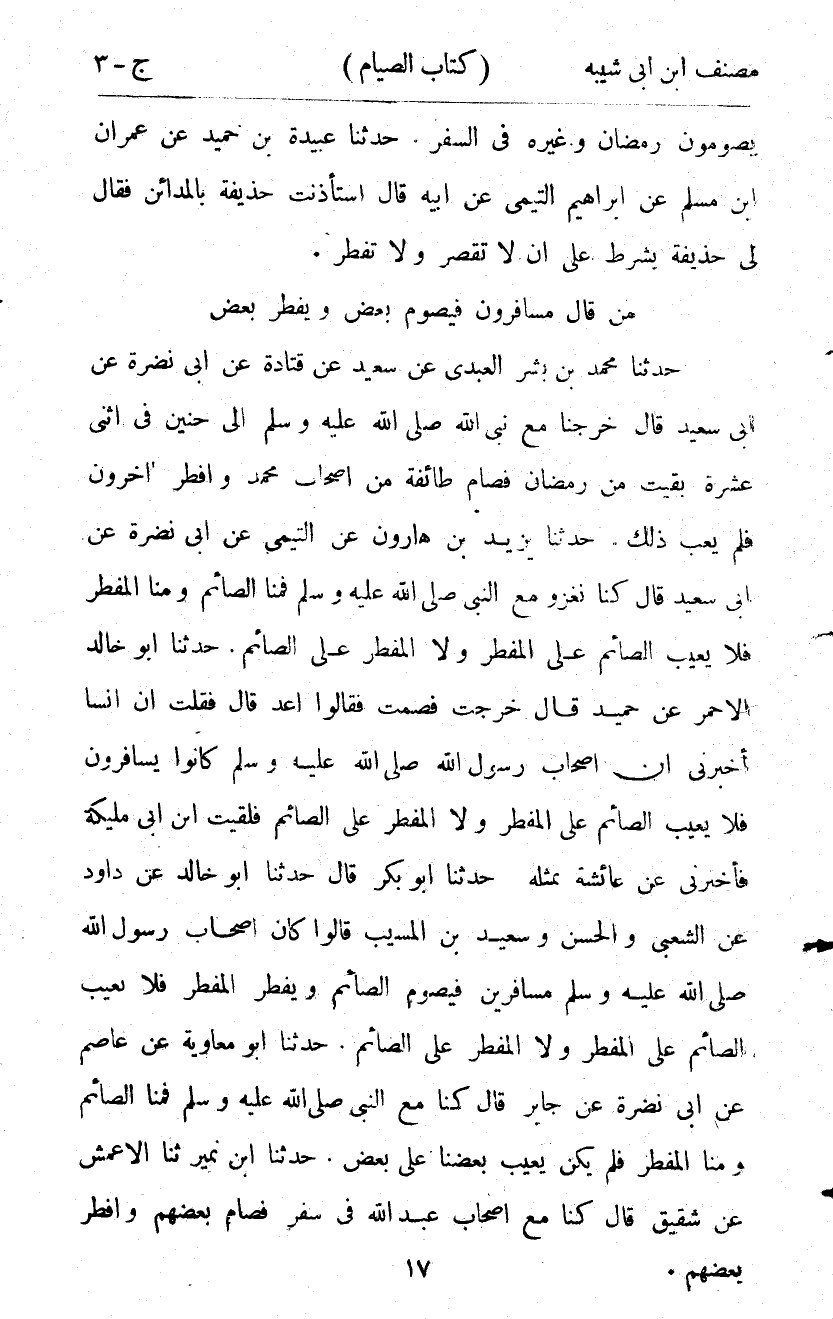 مصنف ابن ابى شيبه (كتاب الصيام) ج - ٣
يصومون رمضان و غيره فى السفر . حدثنا عبيدة بن حميد عن عمران
ابن مسلم عن ابراهيم التيمى عن ابيه قال استأذنت حذيفة بالمدائن فقال
لى حذيفة بشرط على ان لا تقصر و لا تفطر .
من قال مسافرون فيصوم بعض و يفطر بعض
حدثنا محمد بن بشر العبدى عن سعيد عن قتادة عن ابى نضرة عن
ابى سعيد قال خرجنا مع نبى الله صلى الله عليه و سلم الى حنين فى اثنى
عشرة بقيت من رمضان فصام طائفة من اصحاب محمد و افطر اخرون
فلم يعب ذلك . حدثنا يزيد بن هارون عن التيمى عن ابى نضرة عن
ابى سعيد قال كنا نغزو مع النبى صلى الله عليه و سلم فمنا الصائم و منا المفطر
فلا يعيب الصائم على المفطر و لا المفطر على الصائم . حدثنا ابو خالد
الاحمر عن حميد قال خرجت فصمت فقالوا اعد قال فقلت ان انسا
أخبرنى ان اصحاب رسول الله صلى الله عليه و سلم كانوا يسافرون
فلا يعيب الصائم على المفطر و لا المفطر على الصائم فلقيت ابن ابى مليكة
فأخبرنى عن عائشة بمثله حدثنا ابو بكر قال حدثنا ابو خالد عن داود
عن الشعبى و الحسن و سعيد بن المسيب قالوا كان اصحاب رسول الله
صلى الله عليه و سلم مسافرين فيصوم الصائم و يفطر المفطر فلا يعيب
الصائم على المفطر و لا المفطر على الصائم . حدثنا ابو معاوية عن عاصم
عن ابى نضرة عن جابر قال كنا مع النبى صلى الله عليه و سلم فمنا الصائم
و منا المفطر فلم يكن يعيب بعضنا على بعض . حدثنا ابن نمير ثنا الاعمش
عن شقيق قال كنا مع اصحاب عبد الله فى سفر فصام بعضهم و افطر
بعضهم .
١٧